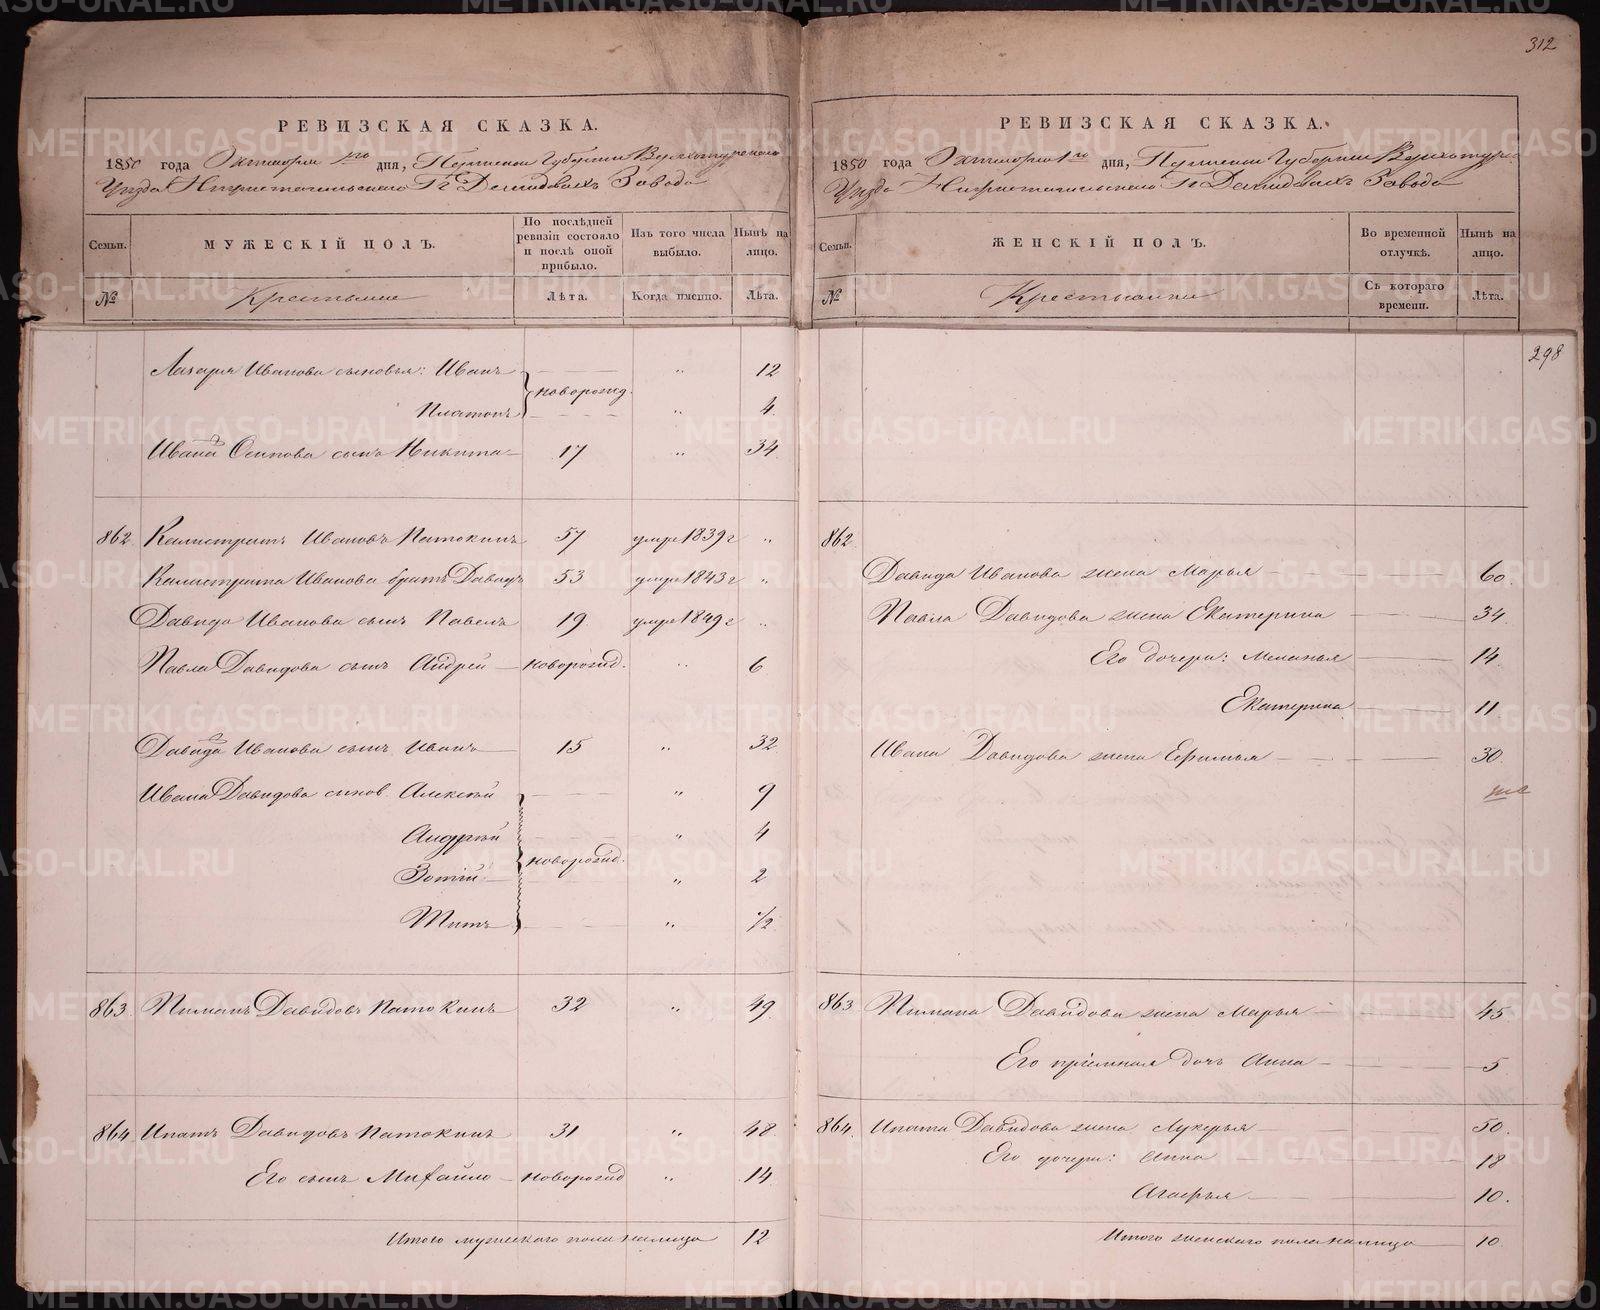 312
РЕВИЗСКАЯ СКАЗКА.
1850 года Октября 1го дня, Пермской Губернии Верхотурскаго
Уезда Нижнетагильскаго Гг Демидовыхъ Завода
Семьи. МУЖЕСКІЙ ПОЛЪ. По послѣдней ревизіи состояло и послѣ оной прибыло. Изъ того числа выбыло. Нынѣ на лицо.
№ Крестьяне Лѣта. Когда именно. Лѣта.
Лазаря Иванова сыновья: Иванъ новорожд. " 12
Платонъ " 4
Ивана Осипова сынъ Никита 17 " 34
862 Калистратъ Ивановъ Патокинъ 57 умре 1839 г "
Калистрата Иванова братъ Давидъ 53 умре 1843 г "
Давида Иванова сынъ Павелъ 19 умре 1849 г "
Павла Давидова сынъ Андрей новорожд. " 6
Давида Иванова сынъ Иванъ 15 " 32
Ивана Давидова сынов. Алексѣй " 9
Андрѣй " 4
Зотій новорожд. " 2
Титъ " 1/2
863. Пиманъ Давидовъ Патокинъ 32 " 49
864 Ипатъ Давидовъ Патокинъ 31 " 48
Его сынъ Михайло новорожд " 14
Итого мужескаго пола налицо 12
РЕВИЗСКАЯ СКАЗКА.
1850 года Октября 1го дня, Пермской Губернии Верхотурс
Уезда Нижнетагильскаго Гг Демидовыхъ Завода
Семьи. ЖЕНСКІЙ ПОЛЪ. Во временной отлучкѣ. Нынѣ на лицо.
№ Крестьянки Съ котораго времени. Лѣта.
298
862
Давида Иванова жена Марья 60.
Павла Давидова жена Екатерина 34
Его дочери: Меланья 14
Екатерина 11
Ивана Давидова жена Ефимья 30
863 Пимана Давидова жена Марья 45
Его пріемная дочь Анна 5
864. Ипата Давидова жена Лукерья 50
Его дочери: Анна 18
Агафья 10.
Итого женскаго пола налицо 10
METRIKI.GASO-URAL.RU